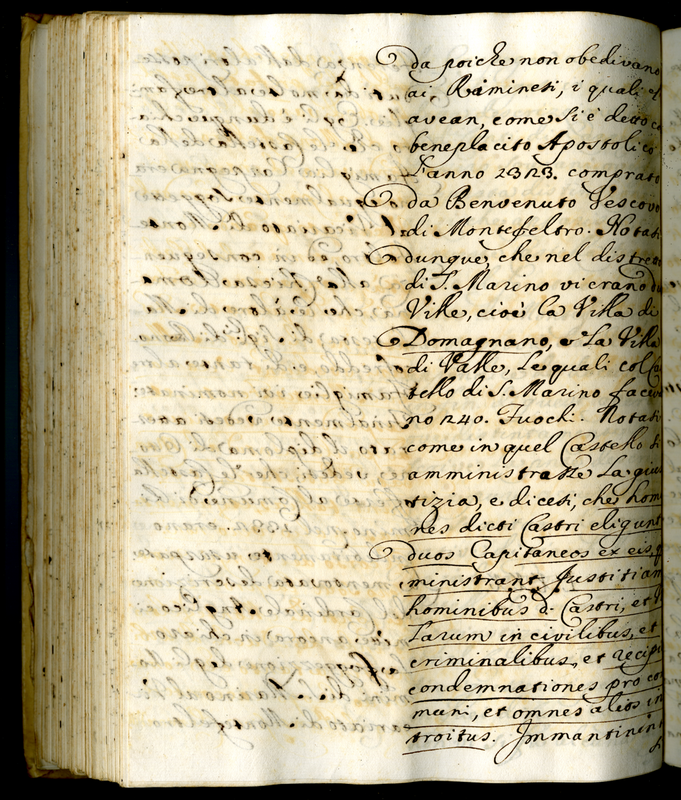 da poiche non obedivano
ai Riminesi, i quali
avean, come si è detto
beneplacito Apostolico
l'anno 1323. comprato
da Benvenuto Vescovo
di Montefeltro. Notasi
dunque, che nel distre
di S. Marino vi erano
Ville, cioè la Villa di
Domagnano, e la Villa
di Valle, le quali col Ca
stello di S. Marino facev
no 240. Fuochi. Notasi
come in quel Castello si
amministrasse la gius
tizia, e dicesi, che hom
nes dicti Castri eligunt
duos Capitaneos ex eis, q
ministrant Justitiam
hominibus d. Castri, et
larum in civilibus, et
criminalibus, et recip
condemnationes pro co
muni, et omnes alios in
troitus. Immantinen